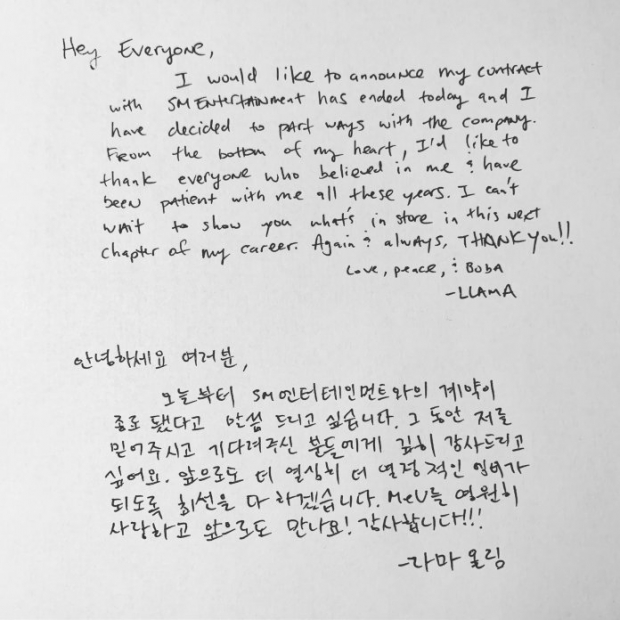 Hey Everyone,
I would like to announce my contract
with SM Entertainment has ended today and I
have decided to part ways with the company.
From the bottom of my heart, I'd like to
thank everyone who believed in me & have
been patient with me all these years. I can't
wait to show you what's in store in this next
chapter of my career. Again & always, THANK YOU!!
Love, peace, & BOBA
-LLAMA
안녕하세요 여러분,
오늘부터 SM엔터테인먼트와의 계약이
종료 됐다고 말씀 드리고 싶습니다. 그 동안 저를
믿어주시고 기다려주신 분들에게 깊히 감사드리고
싶어요. 앞으로도 더 열심히 더 열정적인 임버가
되도록 최선을 다 하겠습니다. MeU들 영원히
사랑하고 앞으로도 만나요! 감사합니다!!!
-라마 올림